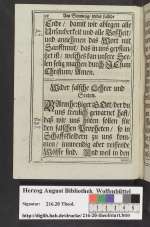 Am Sonntag
Ende / damit wir ablegen alle
Unsauberkeit und alle Boßheit/
und annehmen das Wort mit
Sanfftmuth / das in uns gepflan-
tzet ist / welches kan unsere See-
len selig machen durch JEsum
Christum / Amen.
Wider falsche Lehrer und
Secten.
BArmhertziger GOtt / der du
uns treulich gewarnet hast/
daß wir uns sollen
den falschen Propheten / so in
Schaffskleidern zu uns kom-
men / inwendig aber reissende
Wölffe sind. Und weil in den
Herzog August Bibliothek Wolfenbüttel
Signatur: 216.28 Theol.
http://diglib.hab.de/drucke/216-28-theol/start.htm